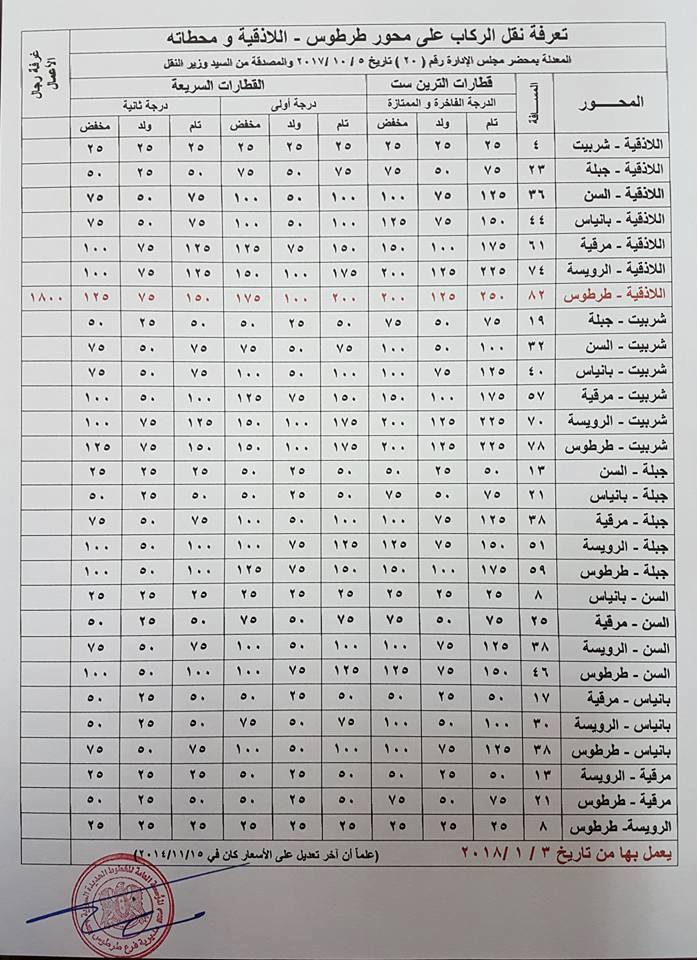 تعرفة نقل الركاب على محور طرطوس - اللاذقية و محطاته
غرفة رجال الأعمال
المعدلة بمحضر مجلس الإدارة رقم ( ٢٠ ) تاريخ ٥ / ١٠ / ٢٠١٧ والمصدقة من السيد وزير النقل
المحـــور المسافة قطارات الترين ست القطارات السريعة
الدرجة الفاخرة و الممتازة درجة أولى درجة ثانية
تام ولد مخفض تام ولد مخفض تام ولد مخفض
اللاذقية - شربيت ٤ ٢٥ ٢٥ ٢٥ ٢٥ ٢٥ ٢٥ ٢٥ ٢٥ ٢٥
اللاذقية - جبلة ٢٣ ٧٥ ٥٠ ٧٥ ٧٥ ٥٠ ٧٥ ٥٠ ٢٥ ٥٠
اللاذقية - السن ٣٦ ١٢٥ ٧٥ ١٠٠ ١٠٠ ٥٠ ١٠٠ ٧٥ ٥٠ ٧٥
اللاذقية - بانياس ٤٤ ١٥٠ ٧٥ ١٢٥ ١٠٠ ٥٠ ١٠٠ ٧٥ ٥٠ ٧٥
اللاذقية - مرقية ٦١ ١٧٥ ١٠٠ ١٥٠ ١٥٠ ٧٥ ١٢٥ ١٢٥ ٧٥ ١٠٠
اللاذقية - الرويسة ٧٤ ٢٢٥ ١٢٥ ٢٠٠ ١٧٥ ١٠٠ ١٥٠ ١٢٥ ٧٥ ١٠٠
اللاذقية - طرطوس ٨٢ ٢٥٠ ١٢٥ ٢٠٠ ٢٠٠ ١٠٠ ١٧٥ ١٥٠ ٧٥ ١٢٥ ١٨٠٠
شربيت - جبلة ١٩ ٧٥ ٥٠ ٧٥ ٥٠ ٢٥ ٥٠ ٥٠ ٢٥ ٥٠
شربيت - السن ٣٢ ١٠٠ ٥٠ ١٠٠ ٧٥ ٥٠ ٧٥ ٧٥ ٥٠ ٧٥
شربيت - بانياس ٤٠ ١٢٥ ٧٥ ١٠٠ ١٠٠ ٥٠ ١٠٠ ٧٥ ٥٠ ٧٥
شربيت - مرقية ٥٧ ١٧٥ ١٠٠ ١٥٠ ١٥٠ ٧٥ ١٢٥ ١٠٠ ٥٠ ١٠٠
شربيت - الرويسة ٧٠ ٢٢٥ ١٢٥ ٢٠٠ ١٧٥ ١٠٠ ١٥٠ ١٢٥ ٧٥ ١٠٠
شربيت - طرطوس ٧٨ ٢٢٥ ١٢٥ ٢٠٠ ١٧٥ ١٠٠ ١٥٠ ١٥٠ ٧٥ ١٢٥
جبلة - السن ١٣ ٥٠ ٢٥ ٥٠ ٥٠ ٢٥ ٥٠ ٢٥ ٢٥ ٢٥
جبلة - بانياس ٢١ ٧٥ ٥٠ ٧٥ ٥٠ ٢٥ ٥٠ ٥٠ ٢٥ ٥٠
جبلة - مرقية ٣٨ ١٢٥ ٧٥ ١٠٠ ١٠٠ ٥٠ ١٠٠ ٧٥ ٥٠ ٧٥
جبلة - الرويسة ٥١ ١٥٠ ٧٥ ١٢٥ ١٢٥ ٧٥ ١٠٠ ١٠٠ ٥٠ ١٠٠
جبلة - طرطوس ٥٩ ١٧٥ ١٠٠ ١٥٠ ١٥٠ ٧٥ ١٢٥ ١٠٠ ٥٠ ١٠٠
السن - بانياس ٨ ٢٥ ٢٥ ٢٥ ٢٥ ٢٥ ٢٥ ٢٥ ٢٥ ٢٥
السن - مرقية ٢٥ ٧٥ ٥٠ ٧٥ ٧٥ ٥٠ ٧٥ ٥٠ ٢٥ ٥٠
السن - الرويسة ٣٨ ١٢٥ ٧٥ ١٠٠ ١٠٠ ٥٠ ١٠٠ ٧٥ ٥٠ ٧٥
السن - طرطوس ٤٦ ١٥٠ ٧٥ ١٢٥ ١٢٥ ٧٥ ١٠٠ ١٠٠ ٥٠ ١٠٠
بانياس - مرقية ١٧ ٥٠ ٢٥ ٥٠ ٥٠ ٢٥ ٥٠ ٥٠ ٢٥ ٥٠
بانياس - الرويسة ٣٠ ١٠٠ ٥٠ ١٠٠ ٧٥ ٥٠ ٧٥ ٥٠ ٢٥ ٥٠
بانياس - طرطوس ٣٨ ١٢٥ ٧٥ ١٠٠ ١٠٠ ٥٠ ١٠٠ ٧٥ ٥٠ ٧٥
مرقية - الرويسة ١٣ ٥٠ ٢٥ ٥٠ ٥٠ ٢٥ ٥٠ ٢٥ ٢٥ ٢٥
مرقية - طرطوس ٢١ ٧٥ ٥٠ ٧٥ ٥٠ ٢٥ ٥٠ ٥٠ ٢٥ ٥٠
الرويسة- طرطوس ٨ ٢٥ ٢٥ ٢٥ ٢٥ ٢٥ ٢٥ ٢٥ ٢٥ ٢٥
يعمل بها من تاريخ ٣ / ١ / ٢٠١٨ (علماً أن آخر تعديل على الأسعار كان في ٢٠١٤/١١/١٥)
المؤسسة العامة للخطوط الحديدية
مديرية فرع طرطوس